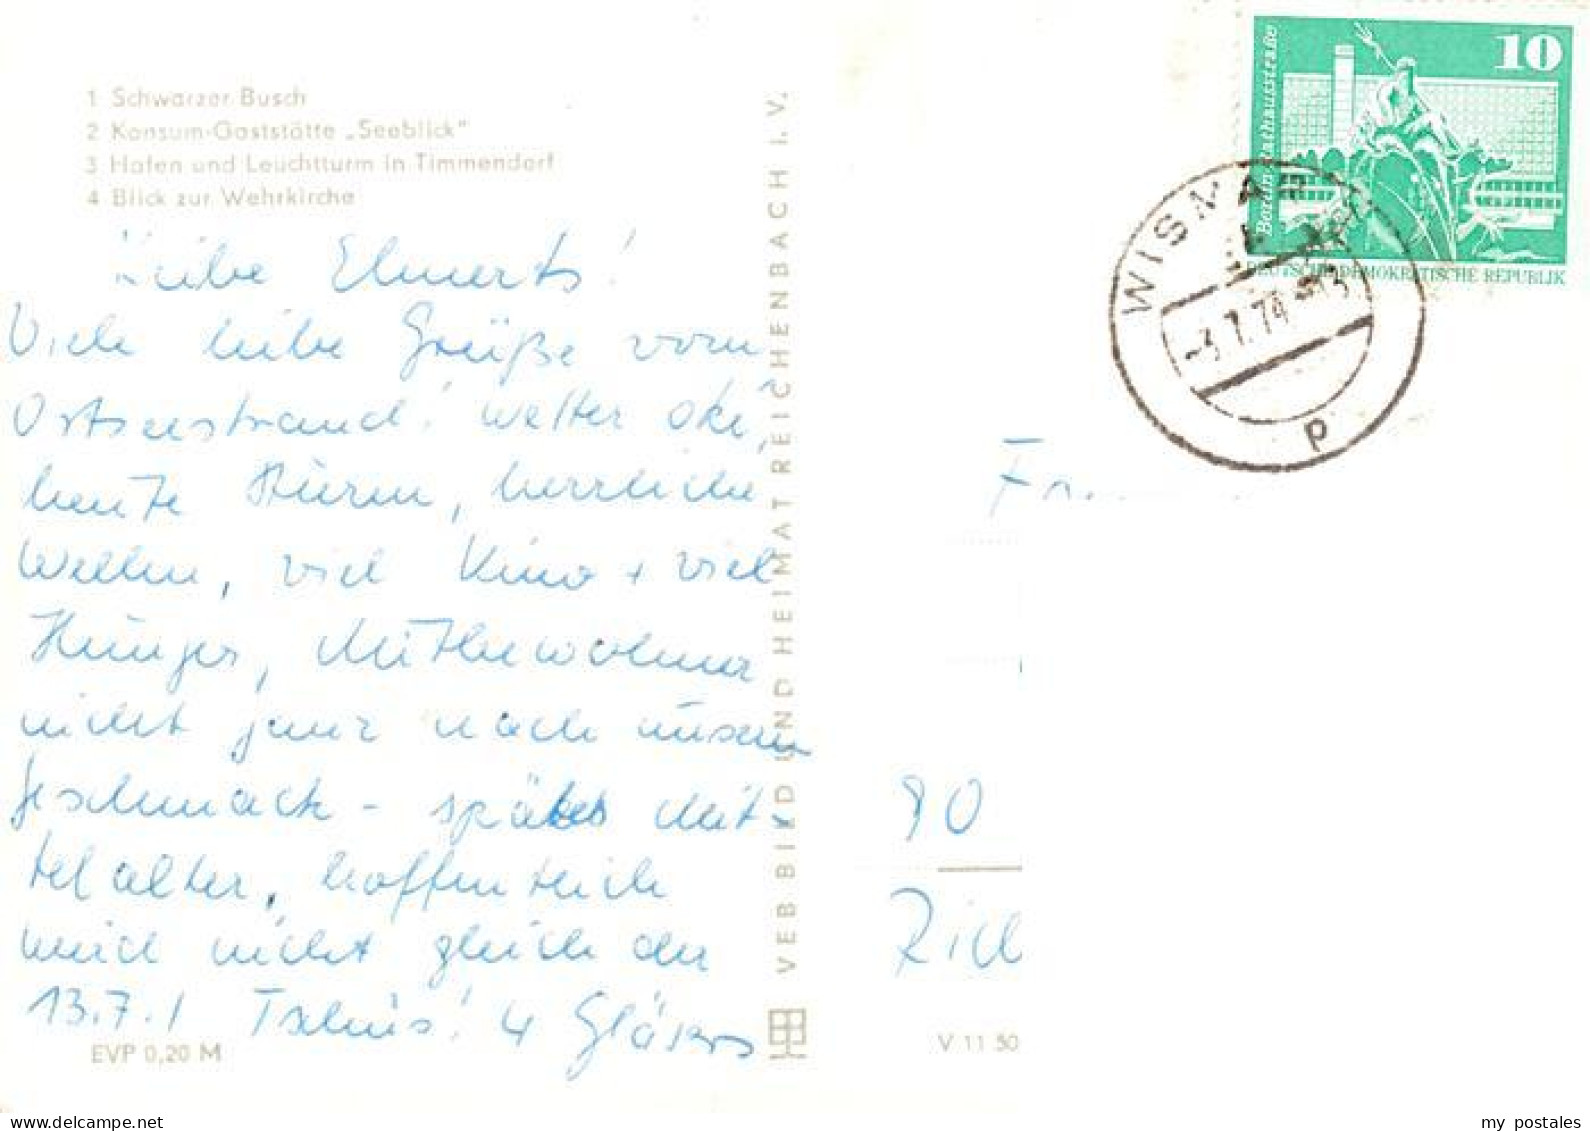 1 Schwarzer Busch
2 Konsum-Gaststätte „Seeblick“
3 Hafen und Leuchtturm in Timmendorf
4 Blick zur Wehrkirche
Liebe Elmerts!
Viele liebe Grüße vom
Ostseestrand! Wetter oke,
heute Sturm, herrliche
Wellen, viel Kino + viel
Hunger, Mitbewohner
nicht ganz nach unserem
Geschmack - spätes Mit-
telalter, hoffentlich
wird nicht gleich der
13.7.! Tschüs! 4 Gläsers
EVP 0,20 M
VEB BILD UND HEIMAT REICHENBACH I. V.
V 11 50
10
Berlin, Rathausstraße
DEUTSCHE DEMOKRATISCHE REPUBLIK
WISMAR
-3.7.74-13
p
90
my postales